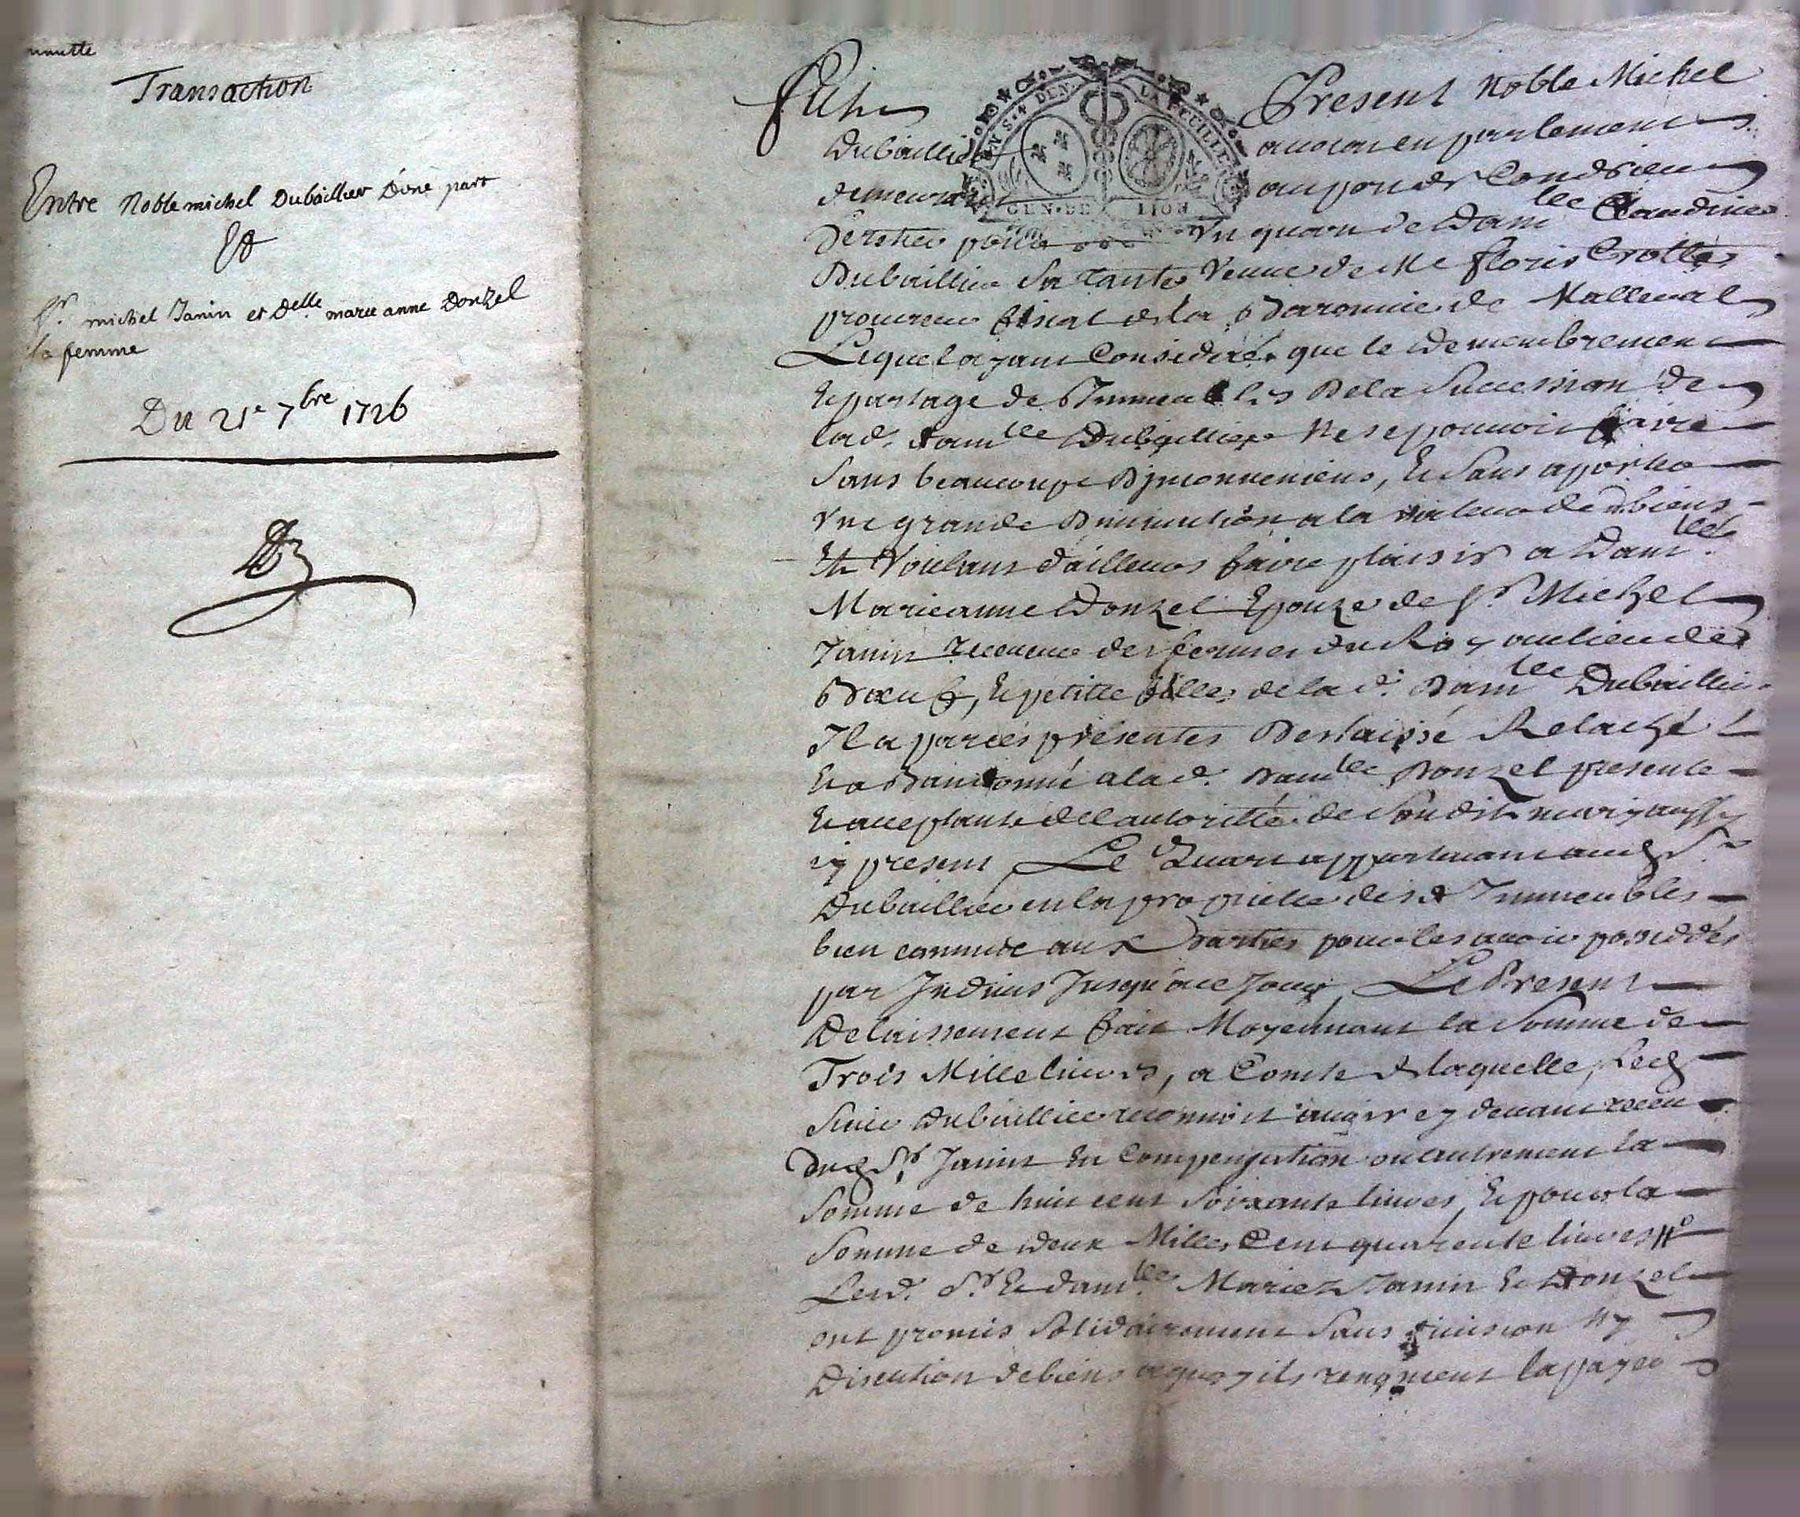 minutte
Transaction
Entre Noble michel Dubaillier D'une part
Et
Sr. michel Janin et Delle. marie anne Donzel
sa femme
Du 21e 7bre 1726
Fut Present Noble Michel
Dubaillier avocat en parlement
demeurant au pon de Condrieu
heritier pour un quart de Damlle Claudine
Dubaillier Sa tante Veuve de Me floris Crottes
procureur fiscal de la Baronnie de Malleval
Lequel ayant Consideré que le demembrement
Et partage des Immeubles De la Succession de
lad. damlle Dubaillier ne se pouvoit faire
Sans beaucoup D'jnconveniens, Et Sans aporter
Vne grande Diminution a la valeur des biens
Et Voulant d'ailleurs faire plaisir a Damlle.
Marieanne Donzel Epouze de Sr. Michel
Janin receveur des fermes du Roy au lieu de
Bœuf, Et petitte fille de lad. Damlle Dubaillier
Il a par ces présentes Deslaissé Relaché
Et abandonné a lad. Damlle Donzel presente
Et acceptante de l'autorité de Sondit mary aussy
icy present, Le Quart appartenant aud. Sr.
Dubaillier en la proprietté desd. Immeubles
bien connus aux Parties pour les avoir possedés
par Indivis Jusqu'a ce Jour, Le Present
Delaissement fait Moyennant la Somme de
Trois Mille livres, a Comte de laquelle, Led.
Sieur Dubaillier reconnoit avoir cy devant receu
dud. Sr. Janin En Compensation ou autrement la
Somme de huit cent Soixante livres, Et pour la
Somme de deux Mille Cent quarente livres
Led. Sr. Et damlle. Mariez Janin Et Donzel
ont promis Solidairement Sans division ny
Discution de biens a quoy ils renoncent la payer
GEN. DE LION